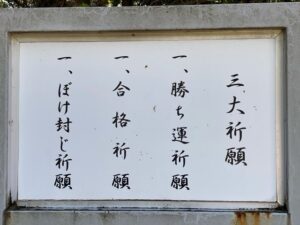 三大祈願
一、勝ち運祈願
一、合格祈願
一、ぼけ封じ祈願